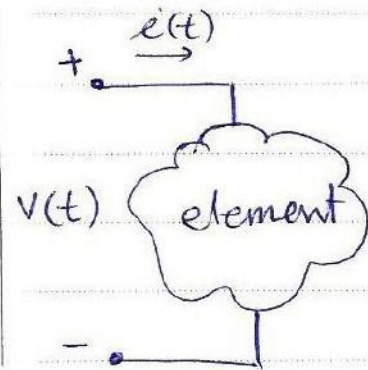 i(t)
+
V(t) element
-